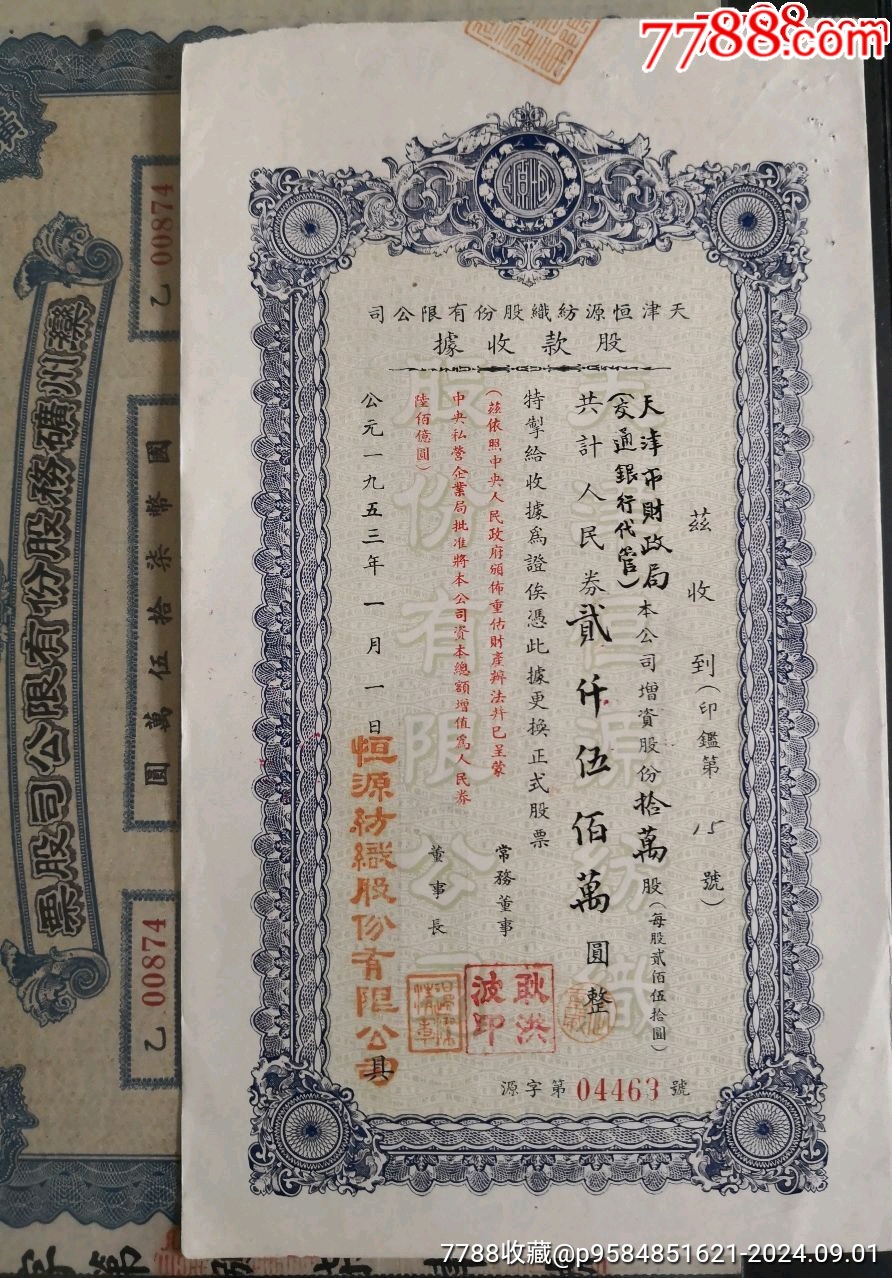 7788.com
天津恒源紡織股份有限公司
股款收據
茲收到(印鑑第15號)
天津市財政局
(交通銀行代管)
本公司增資股份拾萬股(每股貳佰伍拾圓)
共計人民券貳仟伍佰萬圓整
特掣給收據爲證俟憑此據更換正式股票
(茲依照中央人民政府頒佈重估財產辦法幷已呈蒙
中央私營企業局批准將本公司資本總額增值爲人民券
陸佰億圓)
公元一九五三年一月一日
恒源紡織股份有限公司具
常務董事
董事長
耿洪波印
源字第04463號
天津恒源紡織股份有限公司
灤州礦務股份有限公司股票
乙 00874
國幣柒拾伍萬圓
乙 00874
7788收藏@p9584851621-2024.09.01